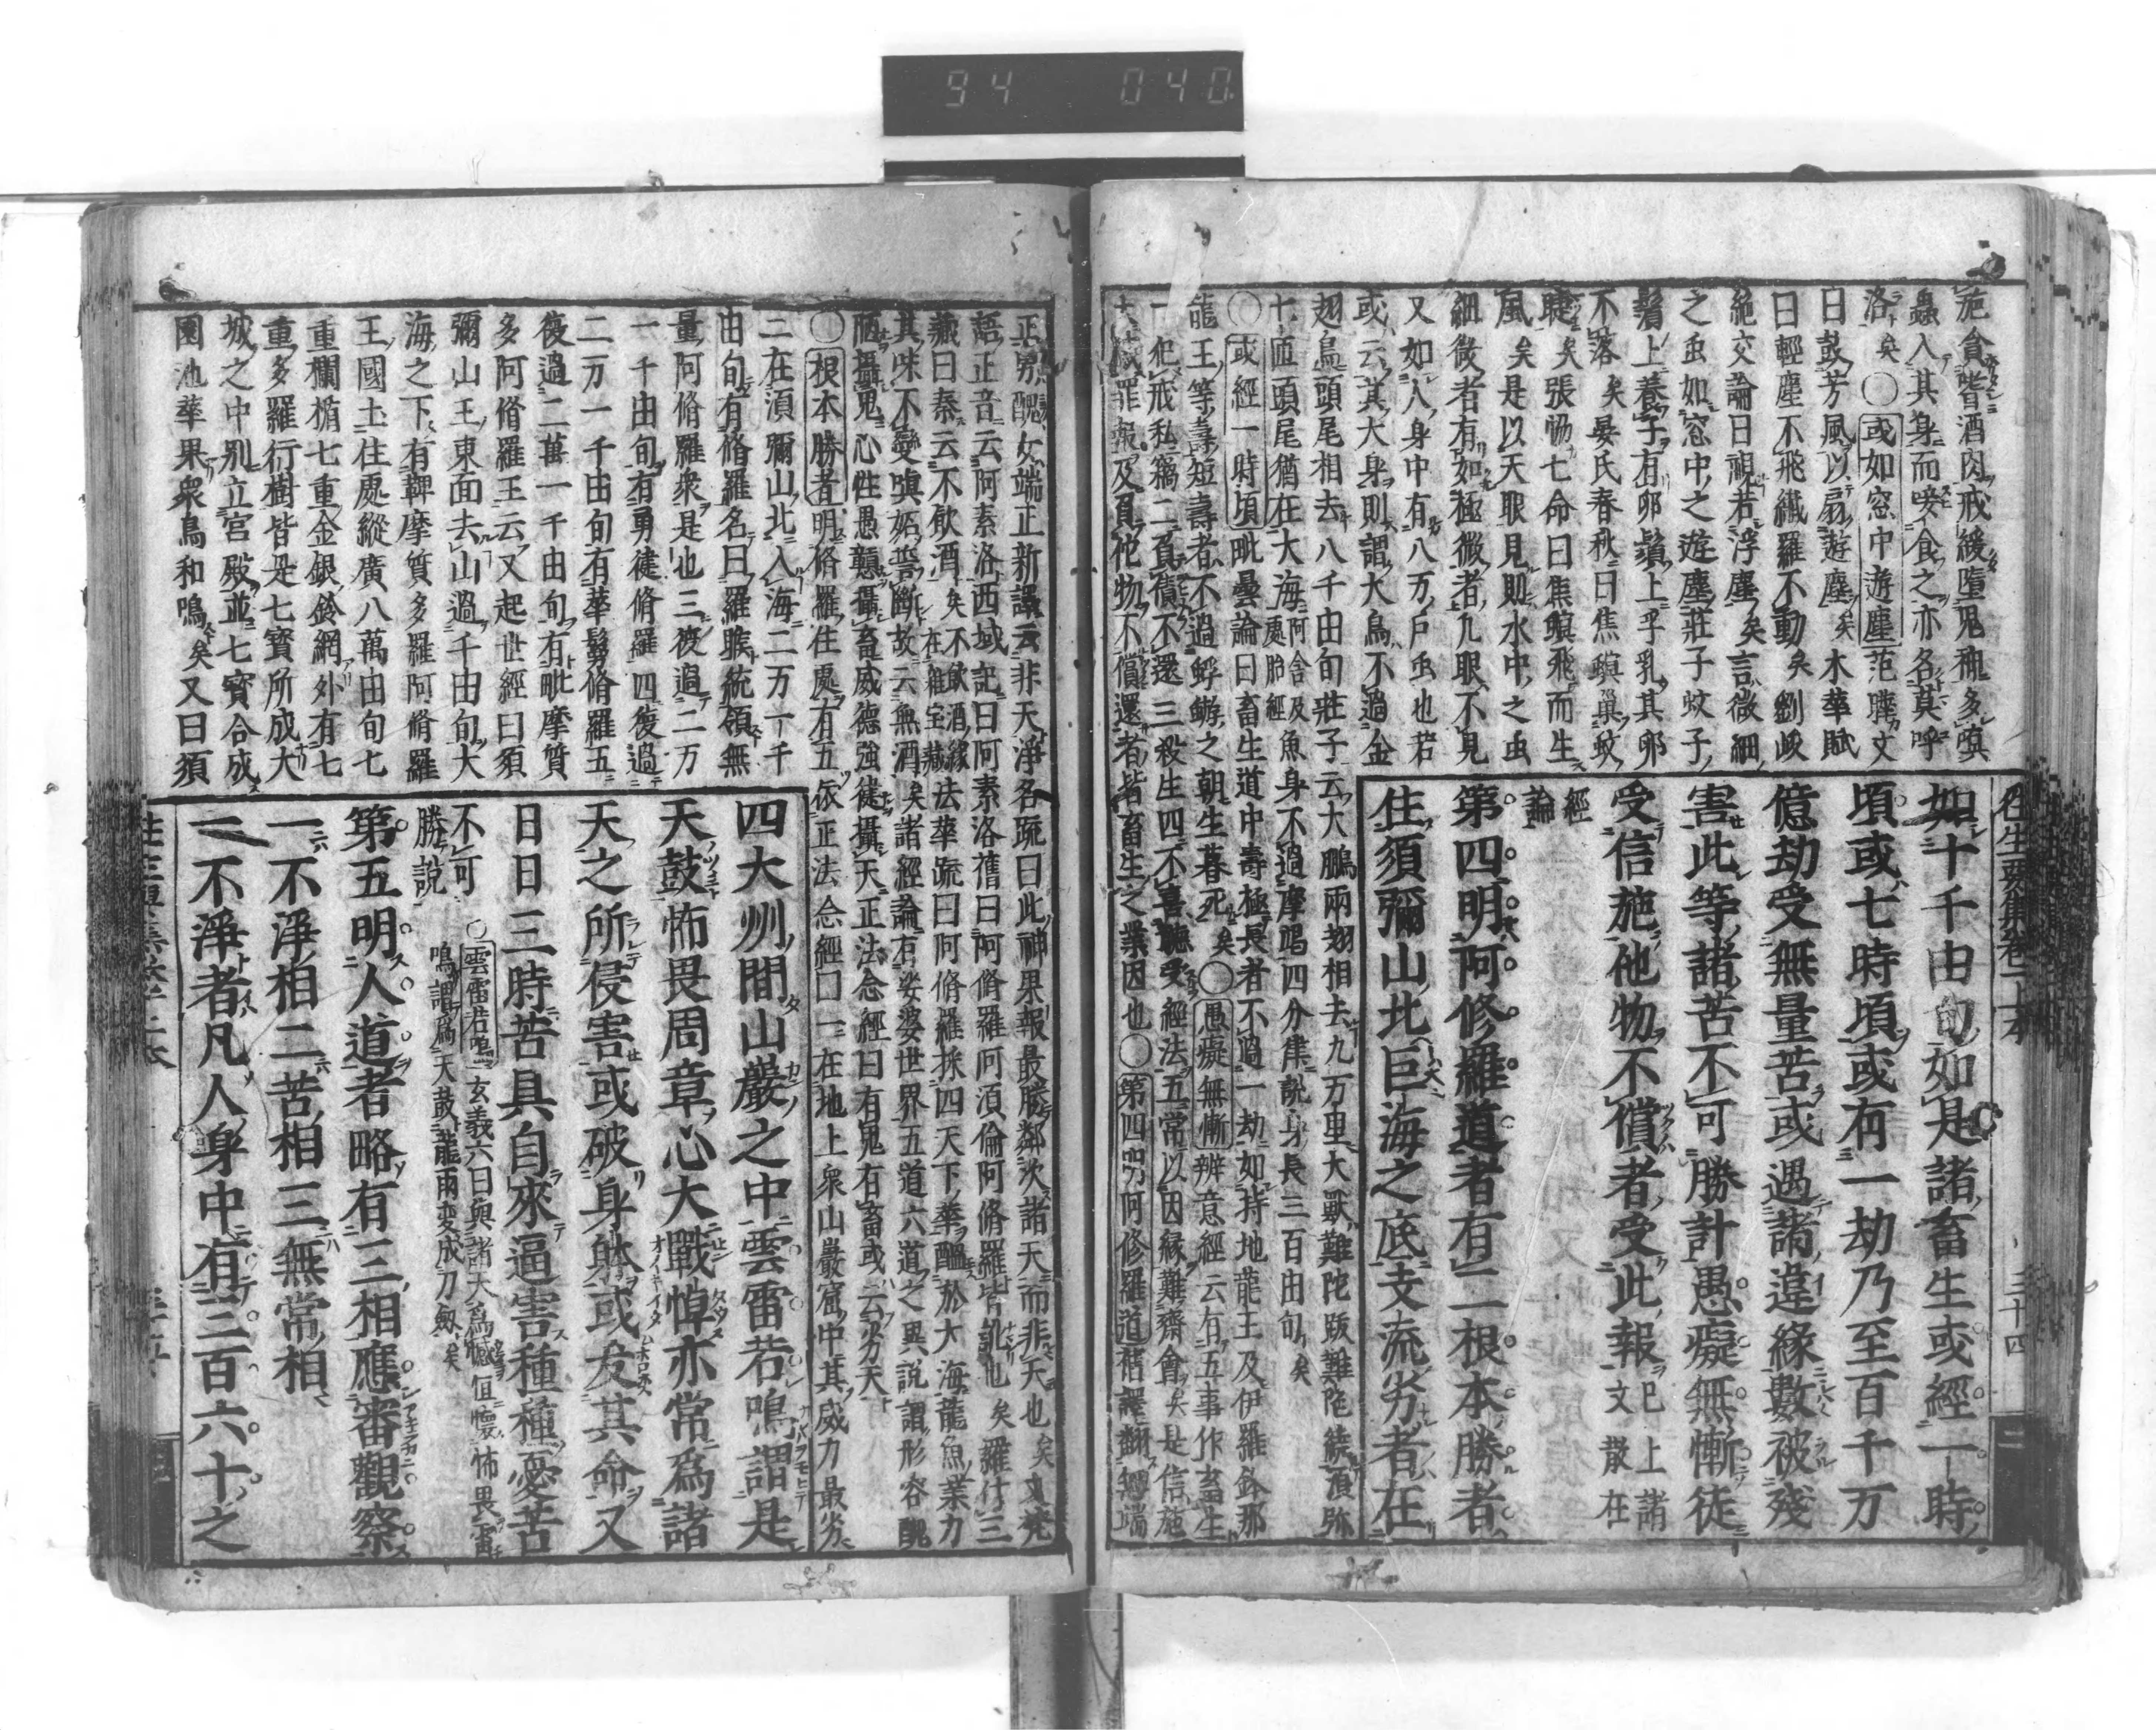 94 040
施貪嗜酒肉戒緩墮鬼種多嗔
蟲入其身而唼食之亦名莫呼
洛矣〇或如窓中遊塵范曄文
曰鼓芳風以扇遊塵矣木華賦
曰輕塵不飛纖羅不動矣劉峻
絶交論曰視若浮塵矣言微細
之虫如窓中之遊塵莊子蚊子
鬚上養子有卵鬚上孚乳其卵
不落矣晏氏春秋曰焦螟巢蚊
睫矣張協七命曰焦螟飛而生
風矣是以天眼見則水中之虫
細微者有如極微者凡眼不見
又如人身中有八万戶虫也若
或云其大身則謂大鳥不過金
翅鳥頭尾相去八千由旬莊子云大鵬兩翅相去九万里大獸難陀跋難陀繞須弥
七匝頭尾猶在大海阿含及處胎經魚身不過摩竭四分律説身長三百由旬矣
〇或經一時頃毗曇論曰畜生道中壽極長者不過一劫如持地龍王及伊羅鉢那
龍王等壽短壽者不過蜉蝣之朝生暮死矣〇愚癡無慚辨意經云有五事作畜生
一犯戒私竊二負債不還三殺生四不喜聽受經法五常以因縁難齋會矣是信施
罪報及負他物不償還者皆畜生之業因也〇第四明阿修羅道舊譯翻無端
往生要集卷上本
三十四
如十千由旬如是諸畜生或經一時
頃或七時頃或有一劫乃至百千万
億劫受無量苦或遇諸違緣數被殘
害此等諸苦不可勝計愚癡無慚徒
受信施他物不償者受此報已上諸文散在
經論
第四明阿修羅道者有二根本勝者
住須彌山北巨海之底支流劣者在
正男醜女端正新譯云非天淨名疏曰此神果報最勝鄰次諸天而非天也矣又梵
語正音云阿素洛西域記曰阿素洛舊曰阿脩羅阿須倫阿脩羅皆訛也矣羅什三
藏曰秦云不飲酒矣不飲酒縁在雜宝藏法華疏曰阿脩羅採四天下華醞於大海龍魚業力
其味不變嗔妬誓斷故云無酒矣諸經論有娑婆世界五道六道之異説謂形容醜
陋攝鬼心性愚戇攝畜威德強徤攝天正法念經曰有鬼有畜或云劣天
〇根本勝者明脩羅住處有五依正法念經曰一在地上衆山巖窟中其威力最劣
二在須彌山北入海二万一千
由旬有脩羅名曰羅睺統領無
量阿脩羅衆是也三復過二万
一千由旬有勇徤脩羅四復過
二万一千由旬有華鬘脩羅五
復過二萬一千由旬有毗摩質
多阿脩羅王云又起世經曰須
彌山王東面去山過千由旬大
海之下有鞞摩質多羅阿脩羅
王國土住處縱廣八萬由旬七
重欄楯七重金銀鈴網外有七
重多羅行樹皆是七寶所成大
城之中別立宮殿並七寶合成
園池華果衆鳥和鳴矣又曰須
四大州間山巖之中雲雷若鳴謂是
天鼓怖畏周章心大戰悼亦常爲諸
天之所侵害或破身躰或夭其命又
日日三時苦具自來逼害種種憂苦
不可勝説〇雲雷若鳴玄義六曰與諸天爲憾恒懷怖畏雷鳴謂爲天鼓龍雨変成刀劔矣
第五明人道者略有三相應審觀察
一不淨相二苦相三無常相
一不淨者凡人身中有三百六十之